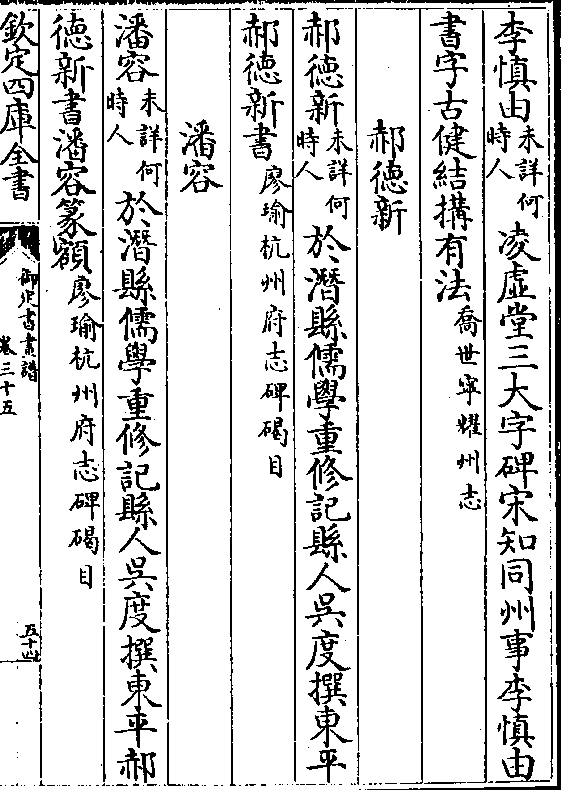 李慎由未詳何時人凌虛堂三大字碑宋知同州事李慎由
書字古健結搆有法喬世寧耀州志
郝徳新
郝徳新未詳何時人於潛縣儒學重修記縣人吳度撰東平
郝徳新書廖瑜杭州府志碑碣目
潘容
潘容未詳何時人於潛縣儒學重修記縣人吳度撰東平郝
徳新書潘容篆額廖瑜杭州府志碑碣目
欽定四庫全書
御定書畫譜
卷三十五
五十四